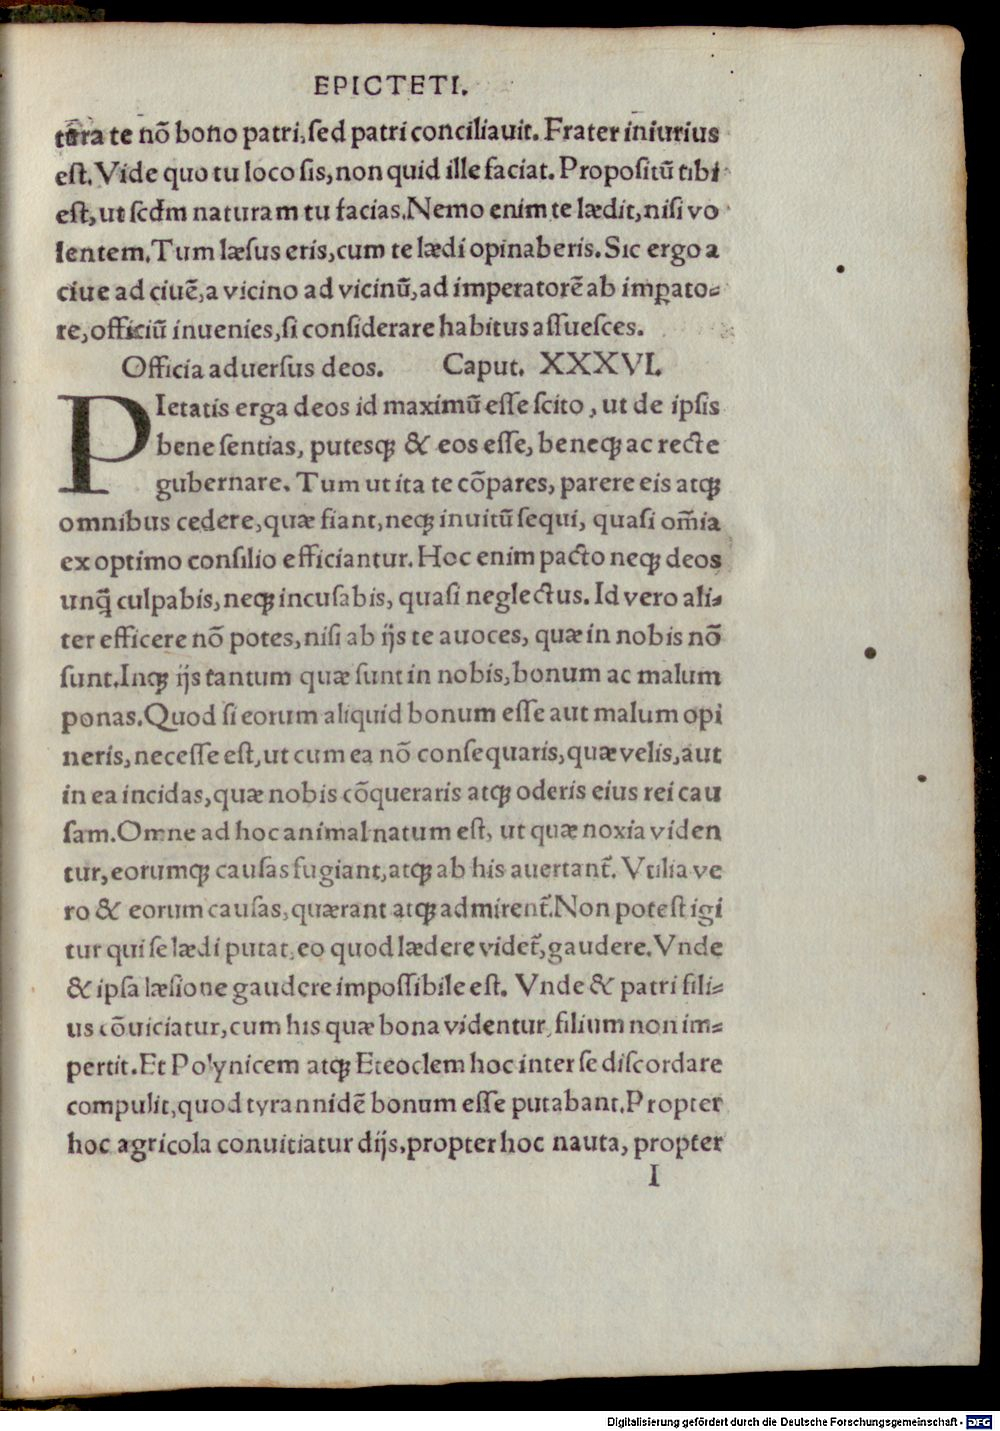 EPICTETI.
tura te nõ bono patri, sed patri conciliauit. Frater iniurius
est. Vide quo tu loco sis, non quid ille faciat. Propositũ tibi
est, ut scđm naturam tu facias. Nemo enim te lædit, nisi vo
lentem. Tum læsus eris, cum te lædi opinaberis. Sic ergo a
ciue ad ciuẽ, a vicino ad vicinũ, ad imperatorẽ ab imꝑato-
re, officiũ inuenies, si considerare habitus assuesces.
Officia aduersus deos. Caput. XXXVI.
PIetatis erga deos id maximũ esse scito, ut de ipsis
bene sentias, putesqꝫ & eos esse, beneqꝫ ac recte
gubernare. Tum ut ita te cõpares, parere eis atqꝫ
omnibus cedere, quæ fiant, neqꝫ inuitũ sequi, quasi om̃ia
ex optimo consilio efficiantur. Hoc enim pacto neqꝫ deos
unq̃ culpabis, neqꝫ incusabis, quasi neglectus. Id vero ali-
ter efficere nõ potes, nisi ab ijs te auoces, quæ in nobis nõ
sunt. Inqꝫ ijs tantum quæ sunt in nobis, bonum ac malum
ponas. Quod si eorum aliquid bonum esse aut malum opi
neris, necesse est, ut cum ea nõ consequaris, quæ velis, aut
in ea incidas, quæ nobis cõqueraris atqꝫ oderis eius rei cau
sam. Omne ad hoc animal natum est, ut quæ noxia viden
tur, eorumqꝫ causas fugiant, atqꝫ ab his auertant̃. Vtilia ve
ro & eorum causas, quærant atqꝫ admirent̃. Non potest igi
tur qui se lædi putat, eo quod lædere videt̃, gaudere. Vnde
& ipsa læsione gaudere impossibile est. Vnde & patri fili-
us cõuiciatur, cum his quæ bona videntur filium non im-
pertit. Et Polynicem atqꝫ Eteoclem hoc inter se discordare
compulit, quod tyrannidẽ bonum esse putabant. Propter
hoc agricola conuitiatur dijs, propter hoc nauta, propter
I
Digitalisierung gefördert durch die Deutsche Forschungsgemeinschaft - DFG